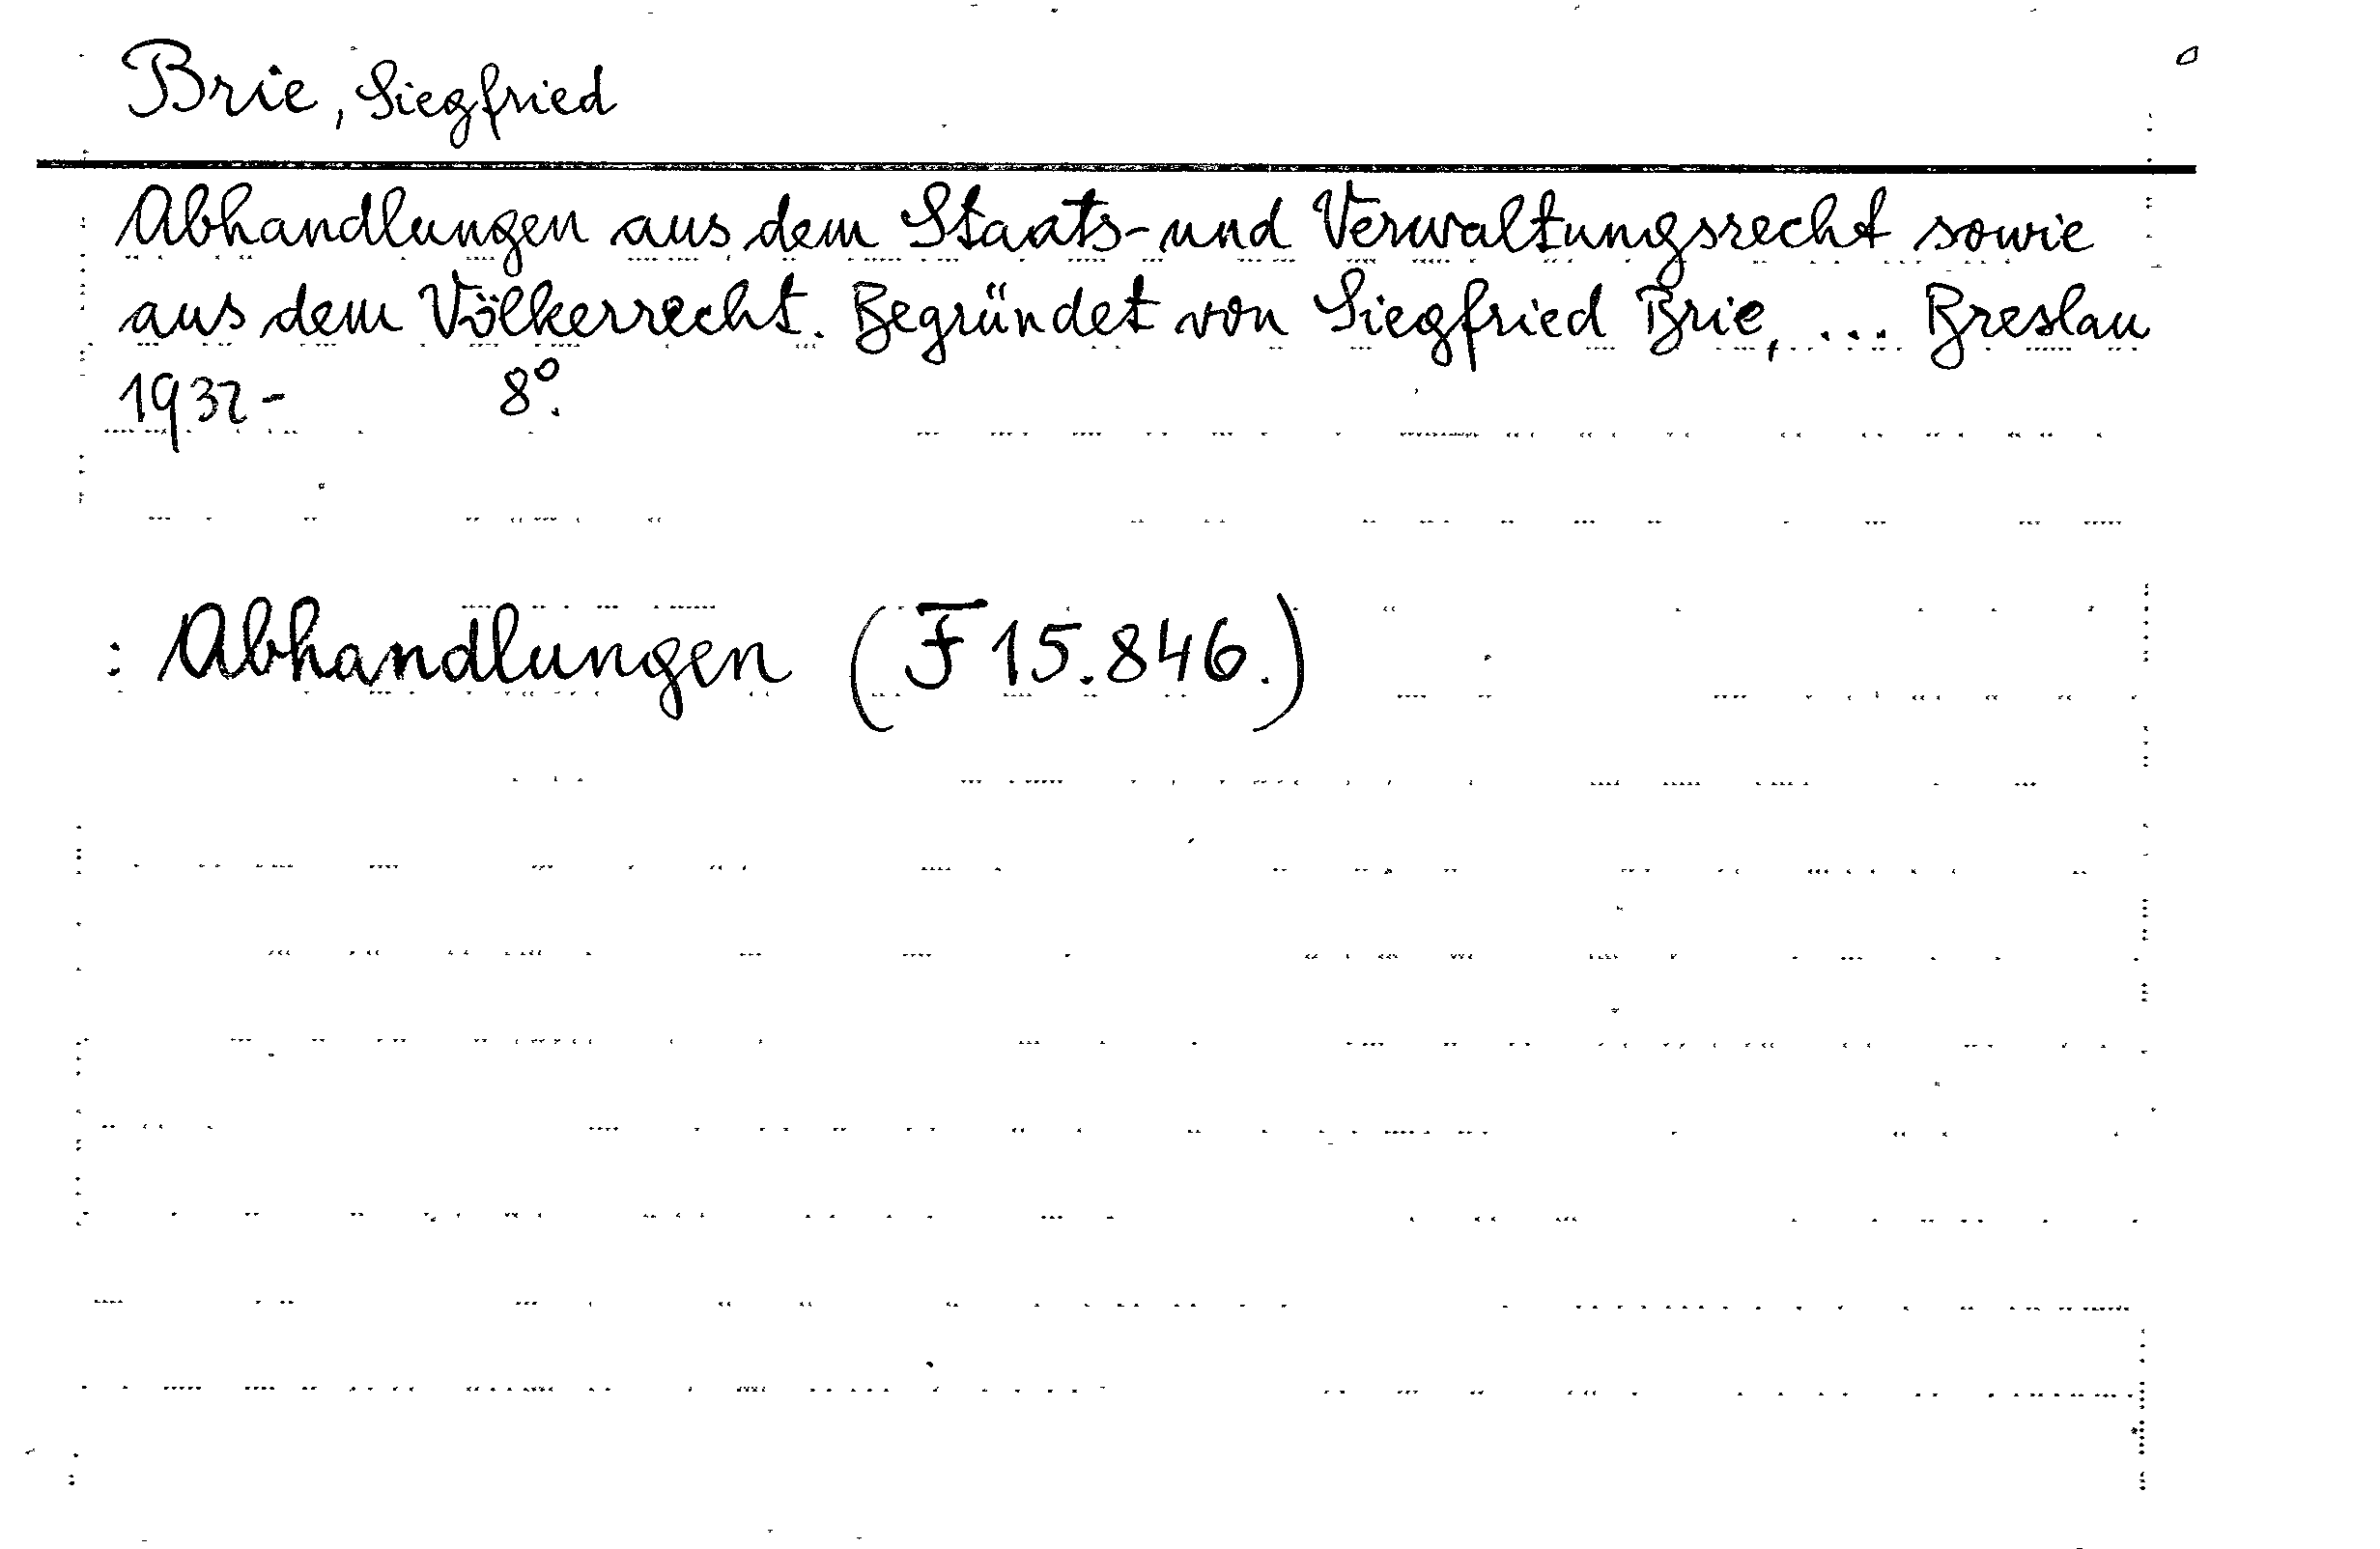 Brie, Siegfried
Abhandlungen aus dem Staats- und Verwaltungsrecht sowie
aus dem Völkerrecht. Begründet von Siegfried Brie, ... Breslau
1932- 8°.
: Abhandlungen (F 15.846.)